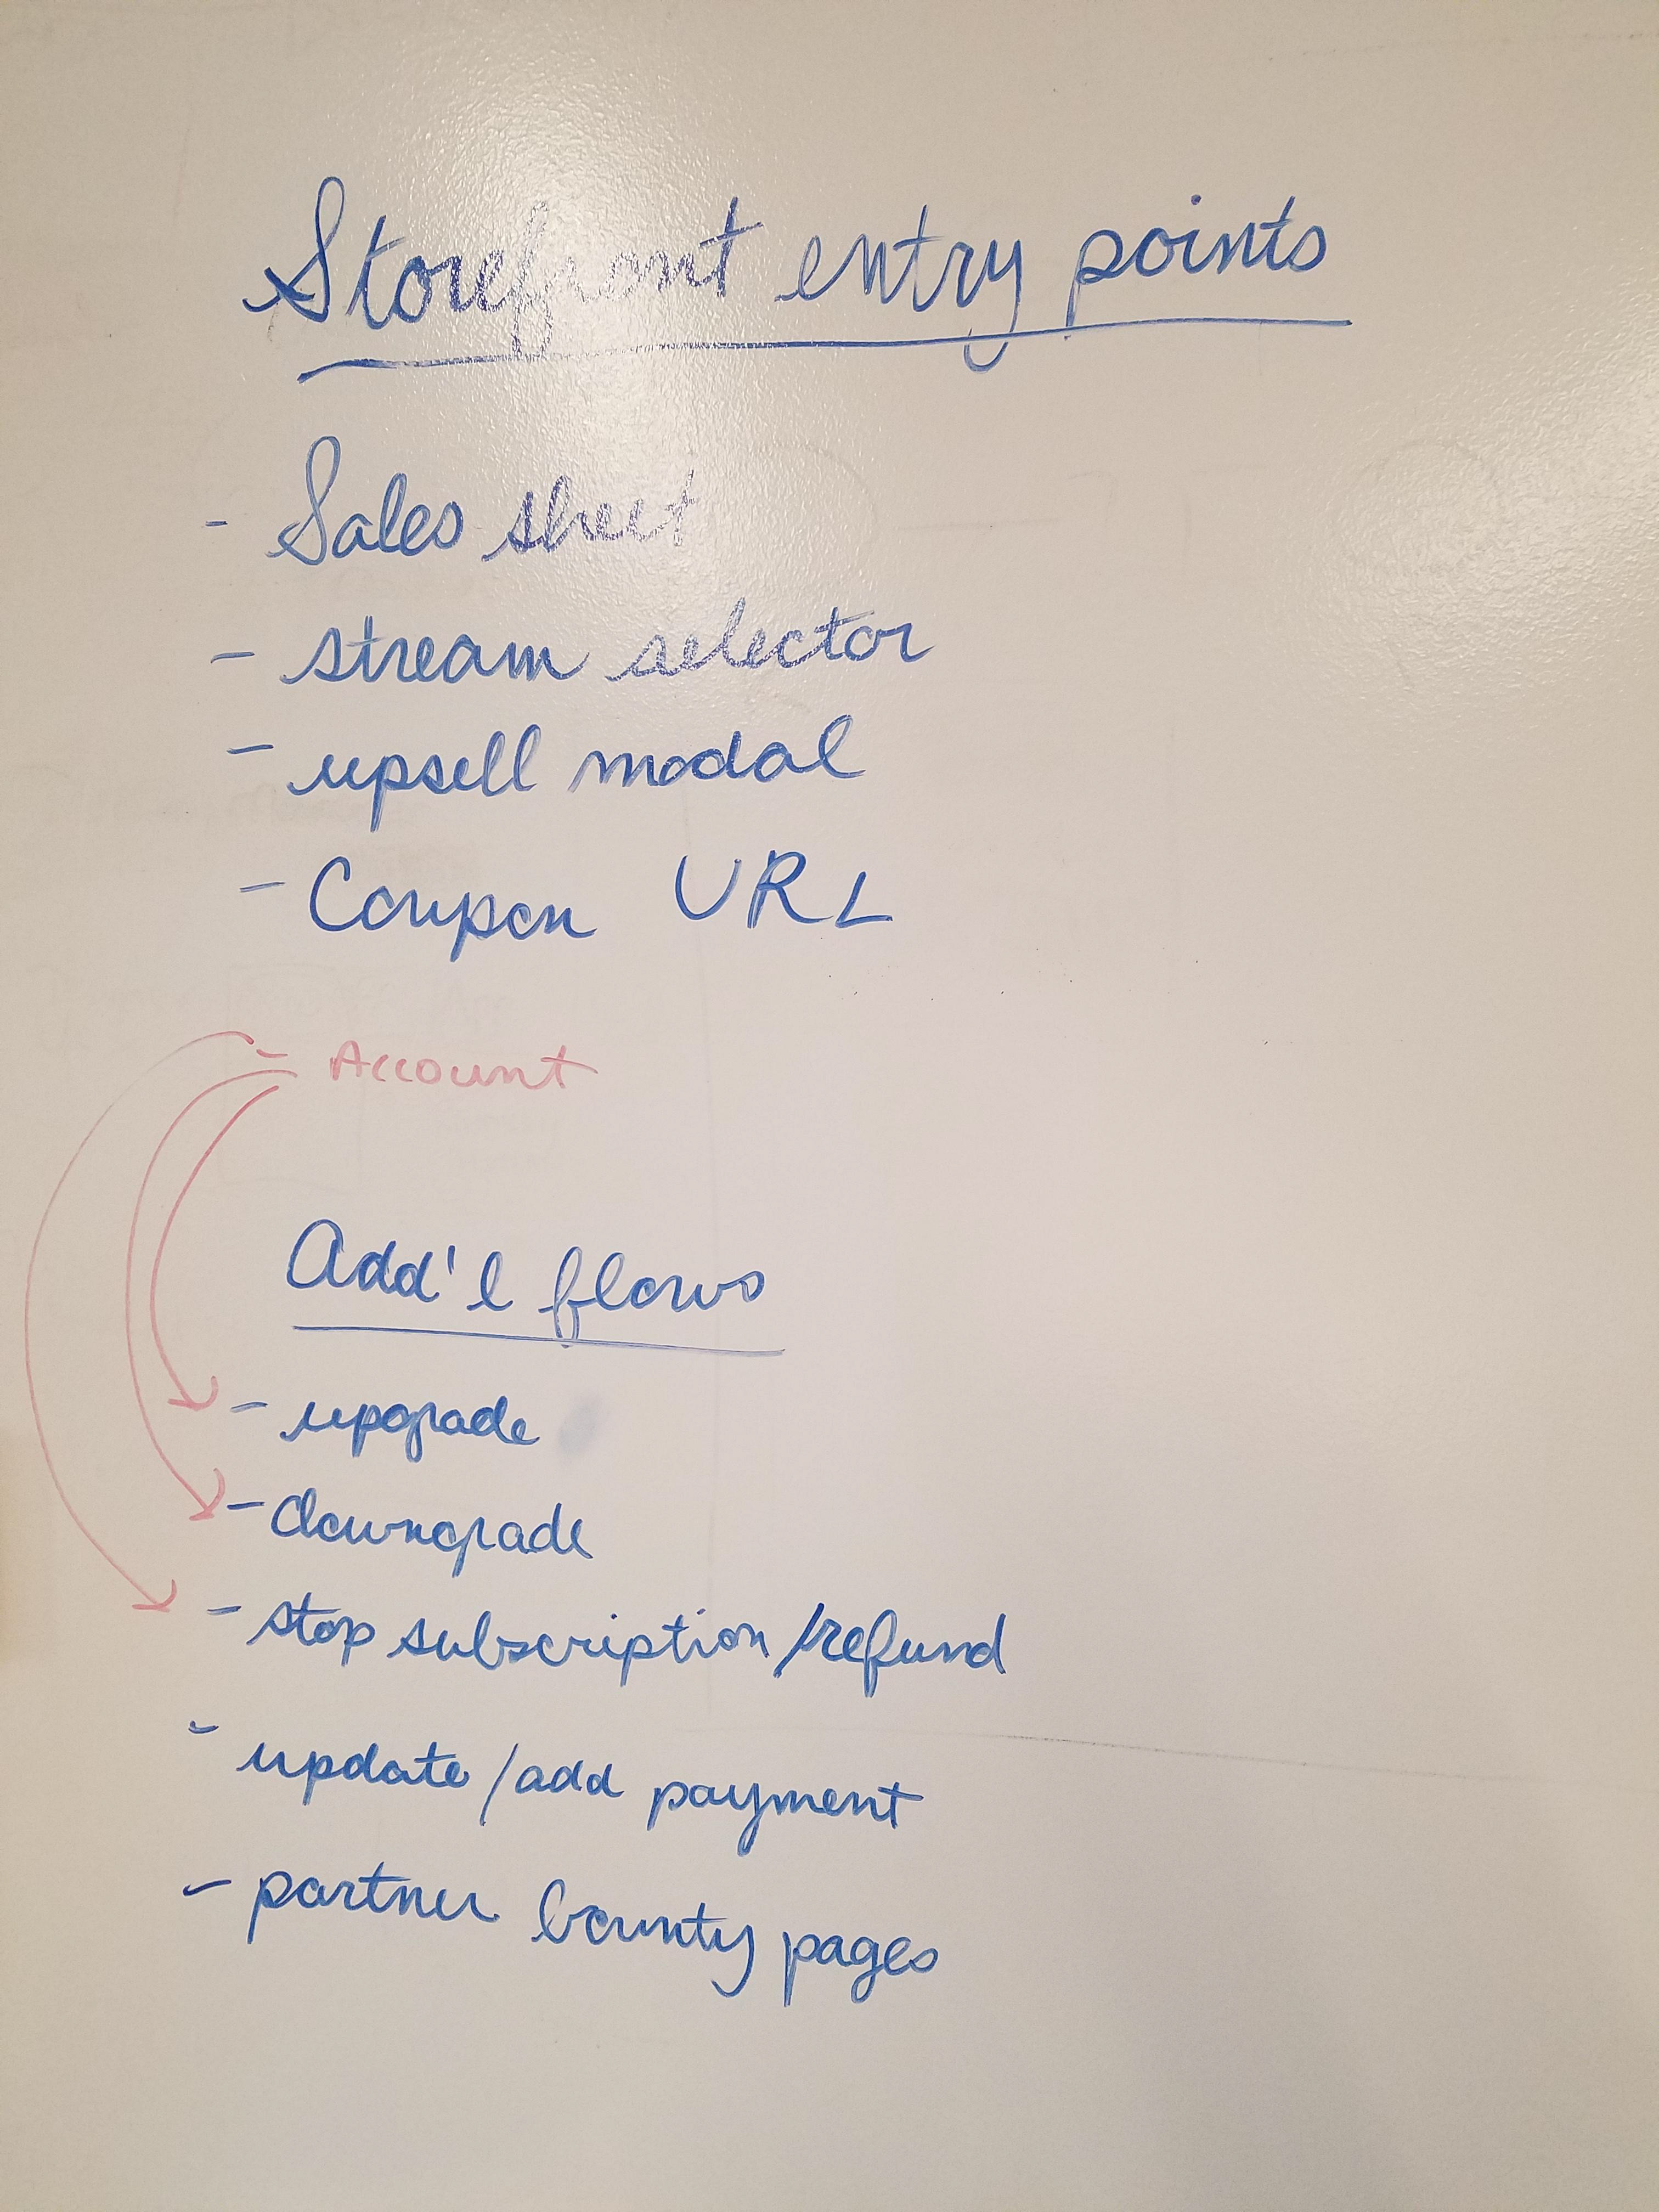 Storefront entry points
- Sales sheet
- stream selector
- upsell modal
- Coupon URL
- Account
Add'l flows
- upgrade
- downgrade
- stop subscription/refund
- update/add payment
- partner bounty pages